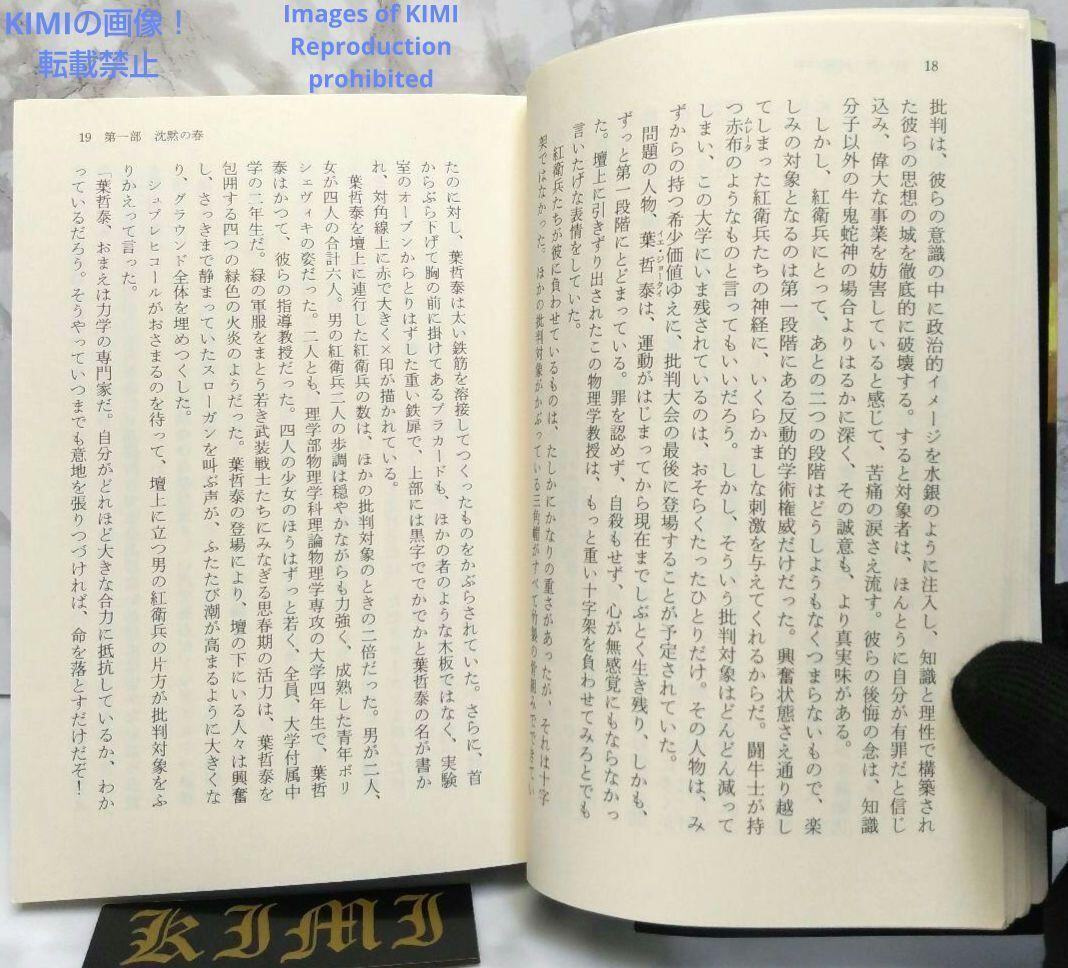 KIMIの画像！
転載禁止
Images of KIMI
Reproduction
prohibited
18
批判は、彼らの意識の中に政治的イメージを水銀のように注入し、知識と理性で構築され
た彼らの思想の城を徹底的に破壊する。すると対象者は、ほんとうに自分が有罪だと信じ
込み、偉大な事業を妨害していると感じて、苦痛の涙さえ流す。彼らの後悔の念は、知識
分子以外の牛鬼蛇神の場合よりはるかに深く、その誠意も、より真実味がある。
しかし、紅衛兵にとって、あとの二つの段階はどうしようもなくつまらないもので、楽
しみの対象となるのは第一段階にある反動的学術権威だけだった。興奮状態さえ通り越し
てしまった紅衛兵たちの神経に、いくらかましな刺激を与えてくれるからだ。闘牛士が持
つ赤布のようなものと言ってもいいだろう。しかし、そういう批判対象はどんどん減って
ムレータ
しまい、この大学にいま残されているのは、おそらくたったひとりだけ。その人物は、み
ずからの持つ希少価値ゆえに、批判大会の最後に登場することが予定されていた。
問題の人物、葉哲泰は、運動がはじまってから現在までしぶとく生き残り、しかも、
イエ・ジョータイ
ずっと第一段階にとどまっている。罪を認めず、自殺もせず、心が無感覚にもならなかっ
た。壇上に引きずり出されたこの物理学教授は、もっと重い十字架を負わせてみろとでも
言いたげな表情をしていた。
紅衛兵たちが彼に負わせているものは、たしかにかなりの重さがあったが、それは十字
架ではなかった。ほかの批判対象がかぶっている三角帽がすべて竹製の骨組みでできてい
19 第一部 沈黙の春
たのに対し、葉哲泰は太い鉄筋を溶接してつくったものをかぶらされていた。さらに、首
からぶら下げて胸の前に掛けてあるプラカードも、ほかの者のような木板ではなく、実験
室のオーブンからとりはずした重い鉄扉で、上部には黒字ででかでかと葉哲泰の名が書か
れ、対角線上に赤で大きく×印が描かれている。
葉哲泰を壇上に連行した紅衛兵の数は、ほかの批判対象のときの二倍だった。男が二人、
女が四人の合計六人。男の紅衛兵二人の歩調は穏やかながらも力強く、成熟した青年ボリ
シェヴィキの姿だった。二人とも、理学部物理学科理論物理学専攻の大学四年生で、葉哲
泰はかつて、彼らの指導教授だった。四人の少女のほうはずっと若く、全員、大学付属中
学の二年生だ。緑の軍服をまとう若き武装戦士たちにみなぎる思春期の活力は、葉哲泰を
包囲する四つの緑色の火炎のようだった。葉哲泰の登場により、壇の下にいる人々は興奮
し、さっきまで静まっていたスローガンを叫ぶ声が、ふたたび潮が高まるように大きくな
り、グラウンド全体を埋めつくした。
シュプレヒコールがおさまるのを待って、壇上に立つ男の紅衛兵の片方が批判対象をふ
りかえって言った。
「葉哲泰、おまえは力学の専門家だ。自分がどれほど大きな合力に抵抗しているか、わか
っているだろう。そうやっていつまでも意地を張りつづければ、命を落とすだけだぞ！
KIMI